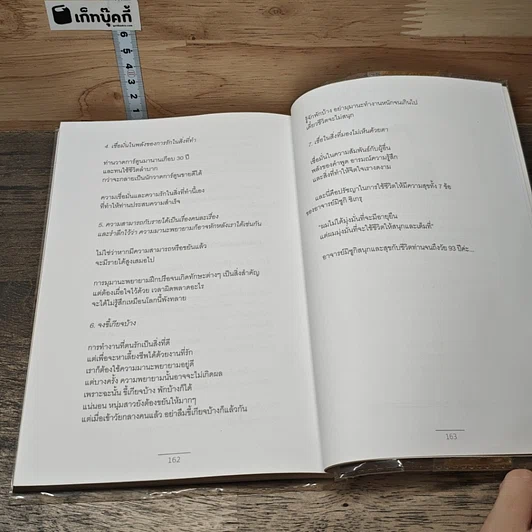 เก็ทบุ๊คกี้
6 5 4 3 2 1
4. เชื่อมั่นในพลังของการรักในสิ่งที่ทำ
ท่านวาดการ์ตูนมานานเกือบ 30 ปี
และทนใช้ชีวิตลำบาก
กว่าจะกลายเป็นนักวาดการ์ตูนขายดีได้
ความเชื่อมั่นและความรักในสิ่งที่ทำนี้เอง
ที่ทำให้ท่านประสบความสำเร็จ
5. ความสามารถกับรายได้เป็นเรื่องคนละเรื่อง
และรำลึกไว้ว่า ความมานะพยายามก็อาจหักหลังเราได้เช่นกัน
ไม่ใช่ว่าหากมีความสามารถหรือขยันแล้ว
จะมีรายได้สูงเสมอไป
การมุมานะพยายามฝึกปรือจนเกิดทักษะต่างๆ เป็นสิ่งสำคัญ
แต่ต้องเผื่อใจไว้ด้วย เวลาผิดพลาดอะไร
จะได้ไม่รู้สึกเหมือนโลกนี้พังทลาย
6. จงขี้เกียจบ้าง
การทำงานที่ตนรักเป็นสิ่งที่ดี
แต่เพื่อจะหาเลี้ยงชีพได้ด้วยงานที่รัก
เราก็ต้องใช้ความมานะพยายามอยู่ดี
แต่บางครั้ง ความพยายามนั้นอาจจะไม่เกิดผล
เพราะฉะนั้น ขี้เกียจบ้าง พักบ้างก็ได้
แน่นอน หนุ่มสาวยังต้องขยันให้มากๆ
แต่เมื่อเข้าวัยกลางคนแล้ว อย่าลืมขี้เกียจบ้างก็แล้วกัน
162
รู้จักพักบ้าง อย่ามุมานะทำงานหนักจนเกินไป
เดี๋ยวชีวิตจะไม่สนุก
7. เชื่อในสิ่งที่มองไม่เห็นด้วยตา
เชื่อมั่นในความสัมพันธ์กับผู้อื่น
พลังของคำพูด อารมณ์ความรู้สึก
และสิ่งที่ทำให้จิตใจเรางดงาม
และนี่คือปรัชญาในการใช้ชีวิตให้มีความสุขทั้ง 7 ข้อ
ของอาจารย์มิซูกิ ชิเกรุ
"ผมไม่ได้มุ่งมั่นที่จะมีอายุยืน
แต่ผมมุ่งมั่นที่จะใช้ชีวิตให้สนุกและเต็มที่"
อาจารย์มิซูกิสนุกและสุขกับชีวิตท่านจนถึงวัย 93 ปีค่ะ...
163